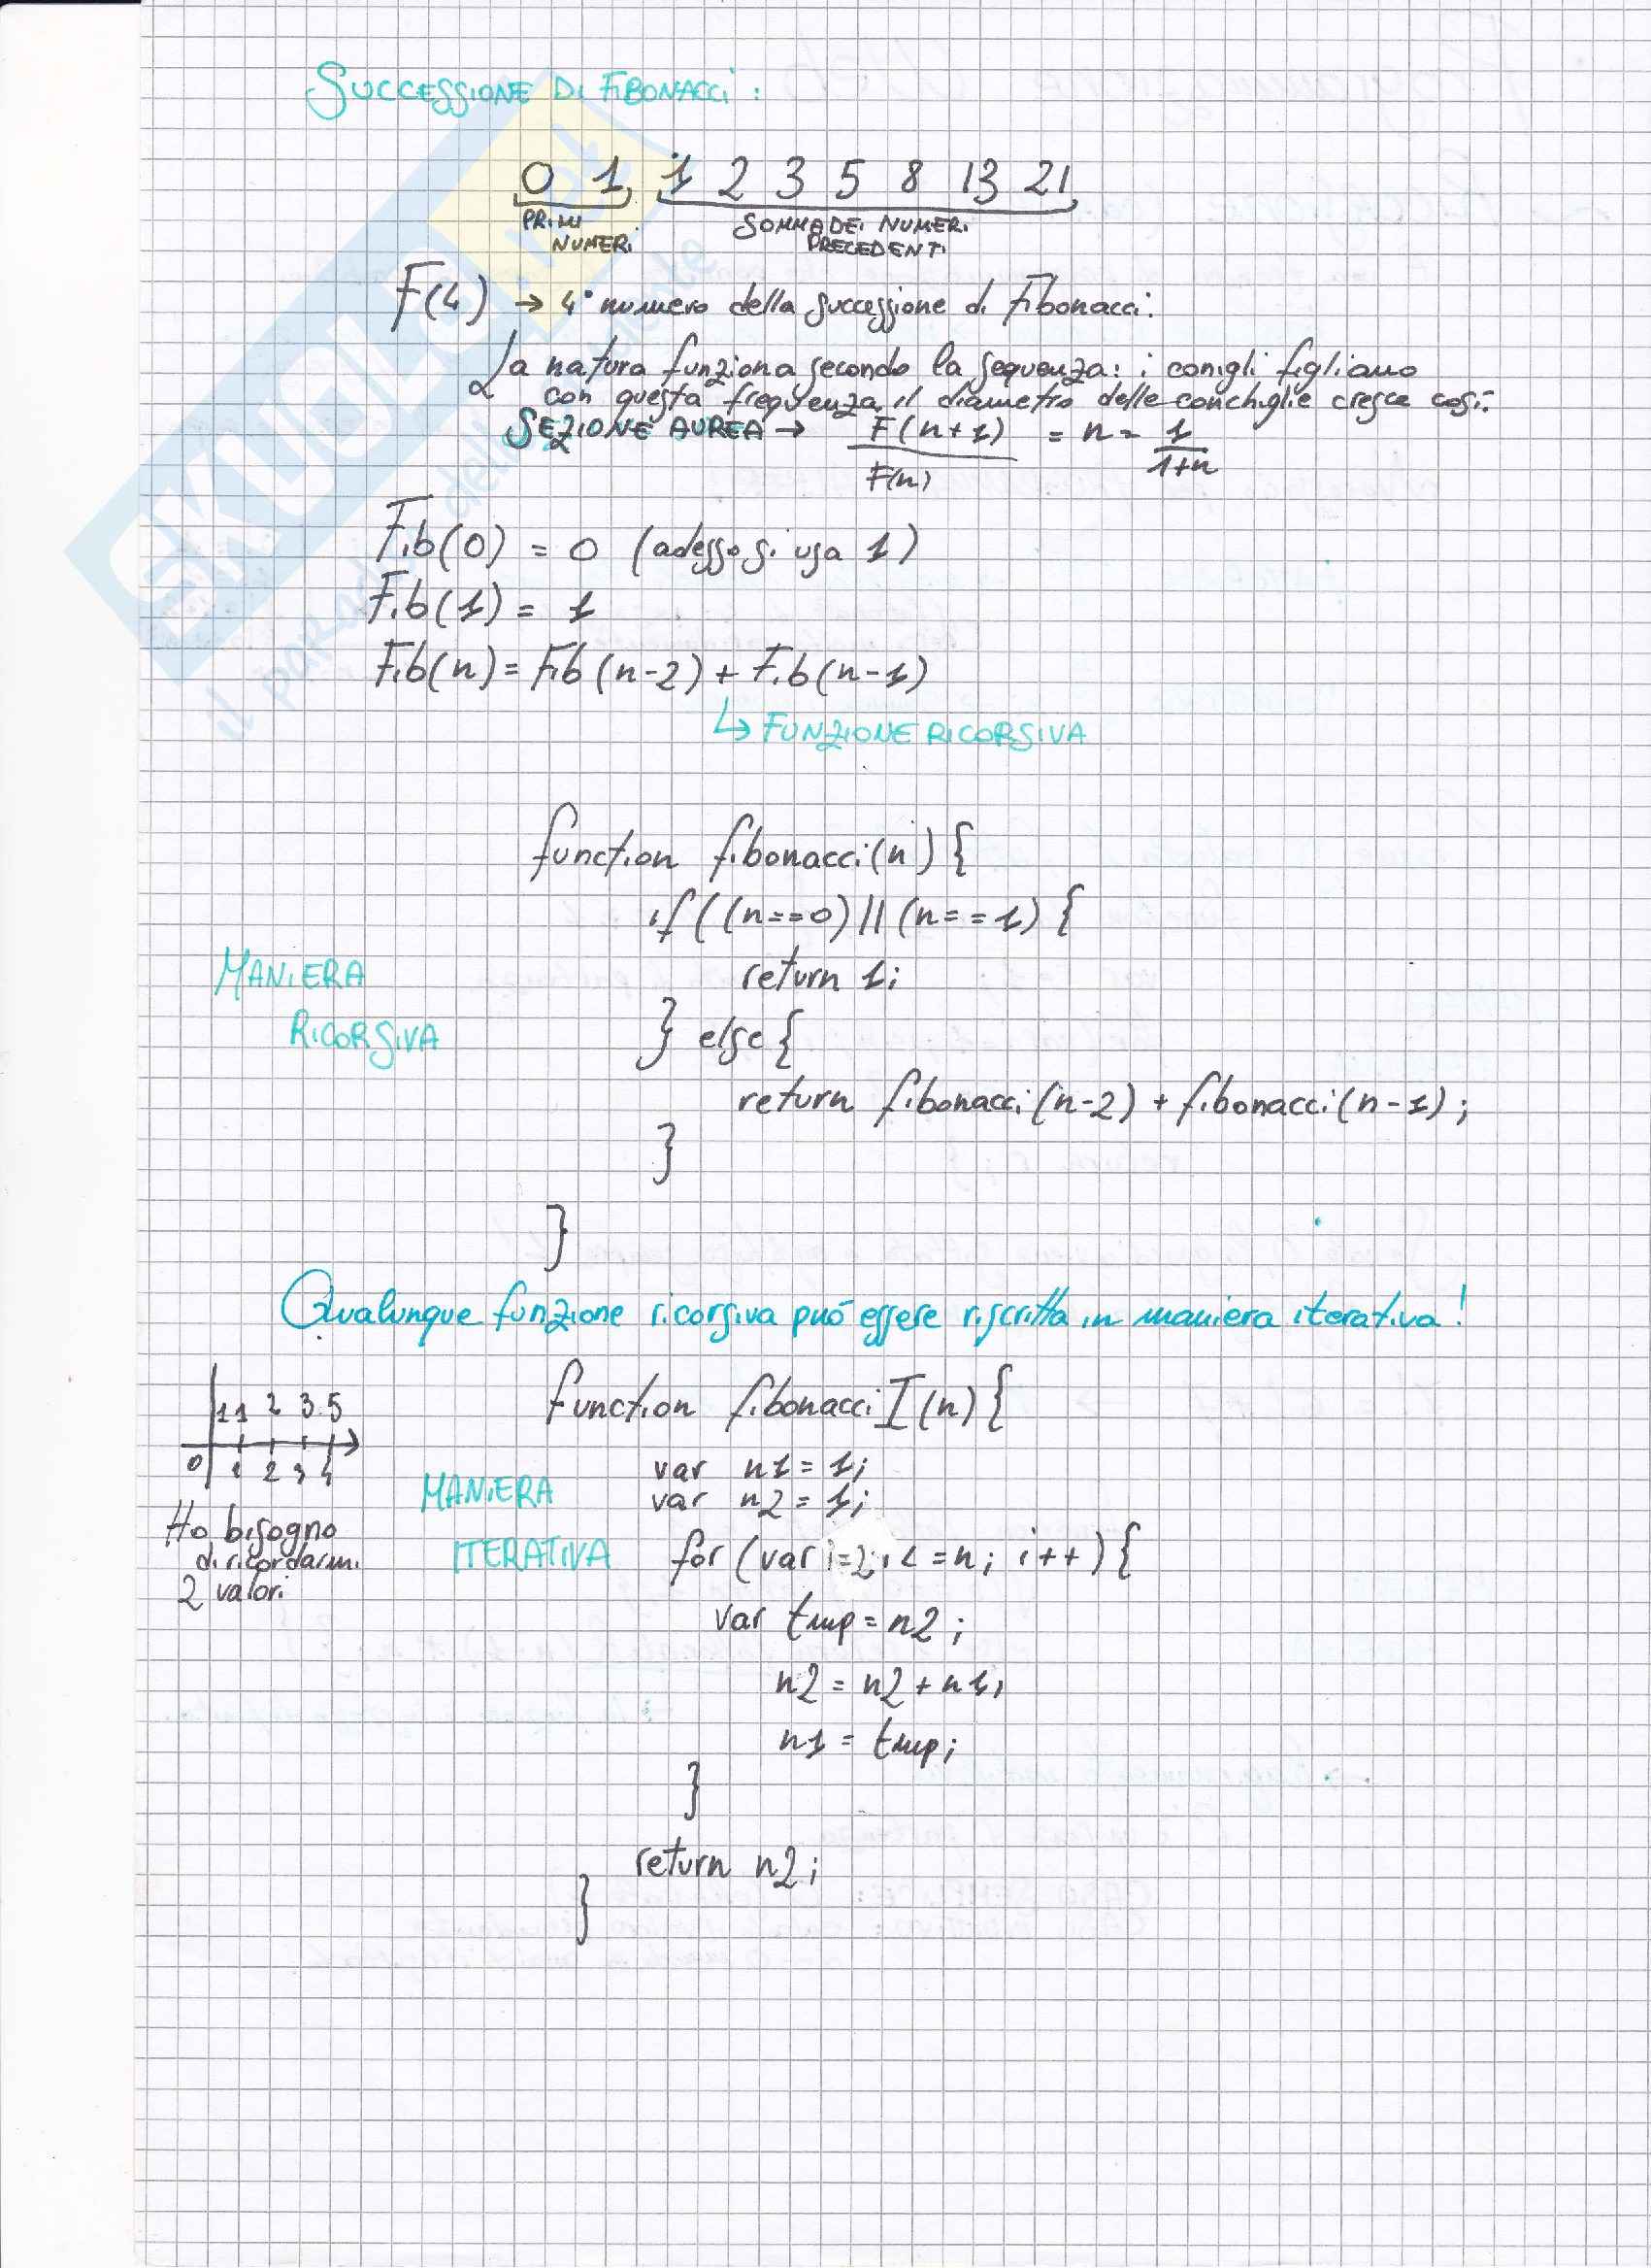 SUCCESSIONE DI FIBONACCI:
0 1 1 2 3 5 8 13 21
PRIMI NUMERI
SOMMA DEI NUMERI PRECEDENTI
F(4) → 4° numero della successione di Fibonacci.
La natura funziona secondo la sequenza: i conigli figliano
con questa frequenza, il diametro delle conchiglie cresce così.
SEZIONE AUREA → F(n+1)/F(n) = n = 1/1+n
Fib(0) = 0 (adesso si usa 1)
Fib(1) = 1
Fib(n) = Fib(n-2) + Fib(n-1)
↳ FUNZIONE RICORSIVA
function fibonacci(n) {
if ((n==0) || (n==1) {
MANIERA
return 1;
RICORSIVA
} else {
return fibonacci(n-2) + fibonacci(n-1);
}
}
Qualunque funzione ricorsiva può essere riscritta in maniera iterativa!
1 1 2 3 5
0 1 2 3 4
Ho bisogno
di ricordarmi
2 valori
function fibonacciI(n) {
MANIERA
ITERATIVA
var n1 = 1;
var n2 = 1;
for (var i=2; i<=n; i++) {
var tmp = n2;
n2 = n2 + n1;
n1 = tmp;
}
return n2;
}
SKUOLA.net